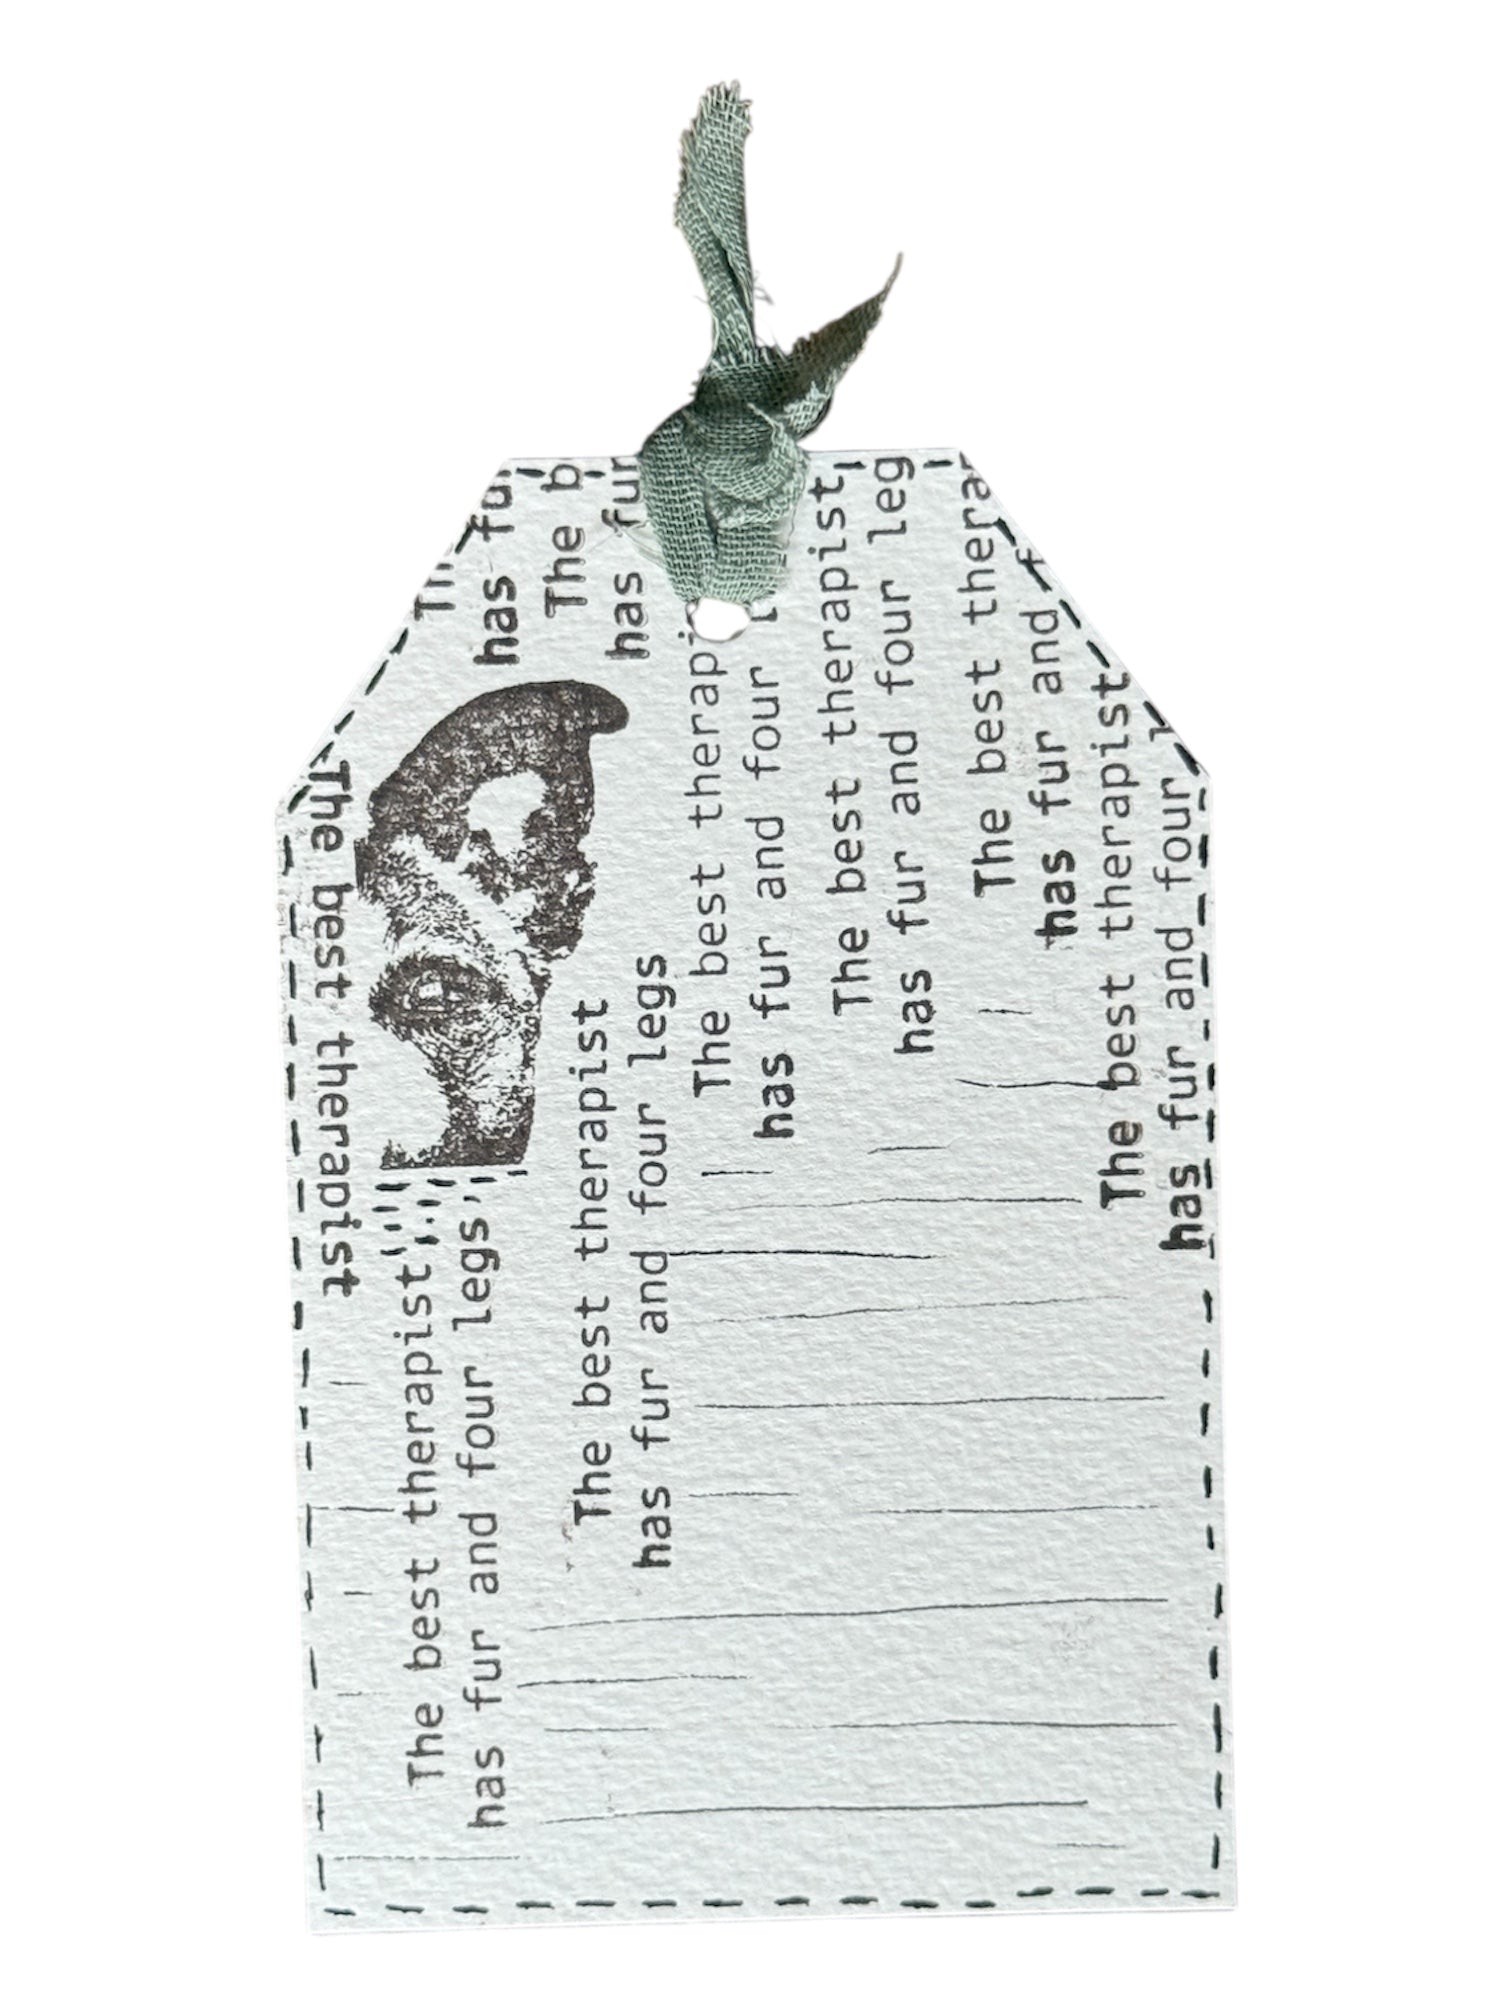 The best therapist
has fu
The b
has fur
The best therapist
has fur and four legs
The best therapist
has fur and four legs
The best therapi
has fur and four l
The best therapist
has fur and four leg
The best thera
has fur and f
The best therapist
has fur and four l